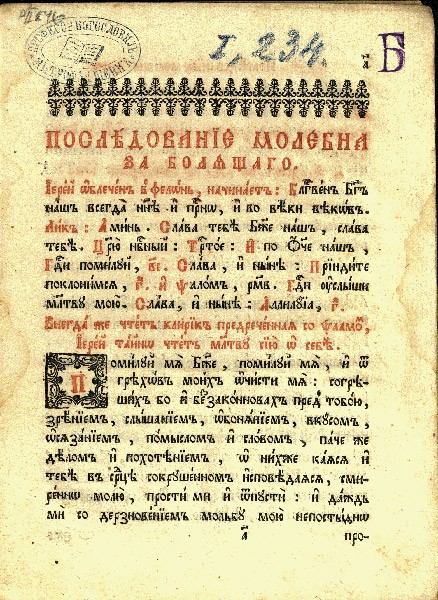 I, 234.
Б
ПОСЛѢДОВАНІЕ МОЛЕБНА
ЗА БОЛѦЩАГО.
Іерей ѡблеченъ въ фелонь, начинаетъ: Благвенъ Бг҃ъ
нашъ всегда нн҃ѣ и҆ прⷭнѡ, и҆ во вѣки вѣкѡвъ.
Ликъ: Аминь. Слава тебѣ Бж҃е нашъ, слава
тебѣ. Цр҃ю нбⷭный: Трⷭтое: И҆ по Оч҃е нашъ,
Гдⷭи помилуй, в҃і. Слава, и҆ нынѣ: Прїидите
поклонимсѧ, г҃. и҆ Ѱаломъ, рм҃в. Гдⷭи ѹслыши
млт҃ву мою. Слава, и҆ нынѣ: Аллилуїа, г҃.
Внегда же чтетъ клирикъ предреченнаѧ со ѱалмомъ,
Іерей тайнѡ чтетъ млт҃ву сїю ѡ себѣ.
Помилуй мѧ Бж҃е, помилуй мѧ, и҆ ѿ
грѣхѡвъ моихъ ѡчисти мѧ: согрѣ-
шихъ бо и҆ беззаконновахъ предъ тобою,
зрѣнїемъ, слышанїемъ, ѡбонѧнїемъ, вкусомъ,
ѡсѧзанїемъ, помысломъ и҆ словомъ, паче же
дѣломъ и҆ похотѣнїемъ, ѡ нихже каѧсѧ и҆
тебѣ въ срⷣцѣ сокрушенномъ исповѣдаѧсѧ, сми-
реннѡ молю, прости ми и҆ ѿпусти: и҆ даждь
ми со дерзновенїемъ мольбу мою непостыднѡ
а҃ про-